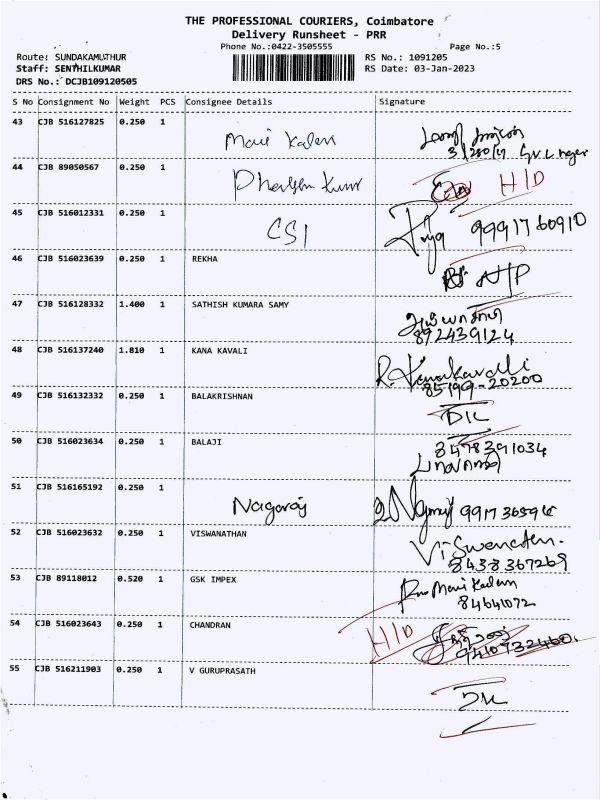 THE PROFESSIONAL COURIERS, Coimbatore
Delivery Runsheet - PRR
Phone No.:0422-3505555 Page No.:5
Route: SUNDAKAMUTHUR RS No.: 1091205
Staff: SENTHILKUMAR RS Date: 03-Jan-2023
DRS No.: DCJB109120505
S No Consignment No Weight PCS Consignee Details Signature
43 CJB 516127825 0.250 1
44 CJB 89050567 0.250 1 H/D
45 CJB 516012331 0.250 1 CSI
46 CJB 516023639 0.250 1 REKHA
47 CJB 516128332 1.400 1 SATHISH KUMARA SAMY
892439124
48 CJB 516137240 1.810 1 KANA KAVALI
85199-20200
49 CJB 516132332 0.250 1 BALAKRISHNAN
50 CJB 516023634 0.250 1 BALAJI 8478391034
51 CJB 516165192 0.250 1 Nagaraj
52 CJB 516023632 0.250 1 VISWANATHAN
8438367269
53 CJB 89118012 0.520 1 GSK IMPEX
84641072
54 CJB 516023643 0.250 1 CHANDRAN H/D
55 CJB 516211903 0.250 1 V GURUPRASATH